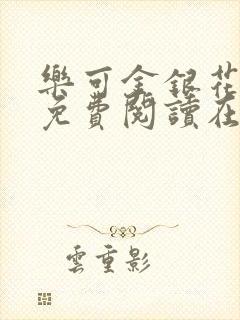 樂可金銀花
免費閱讀在
雲重影